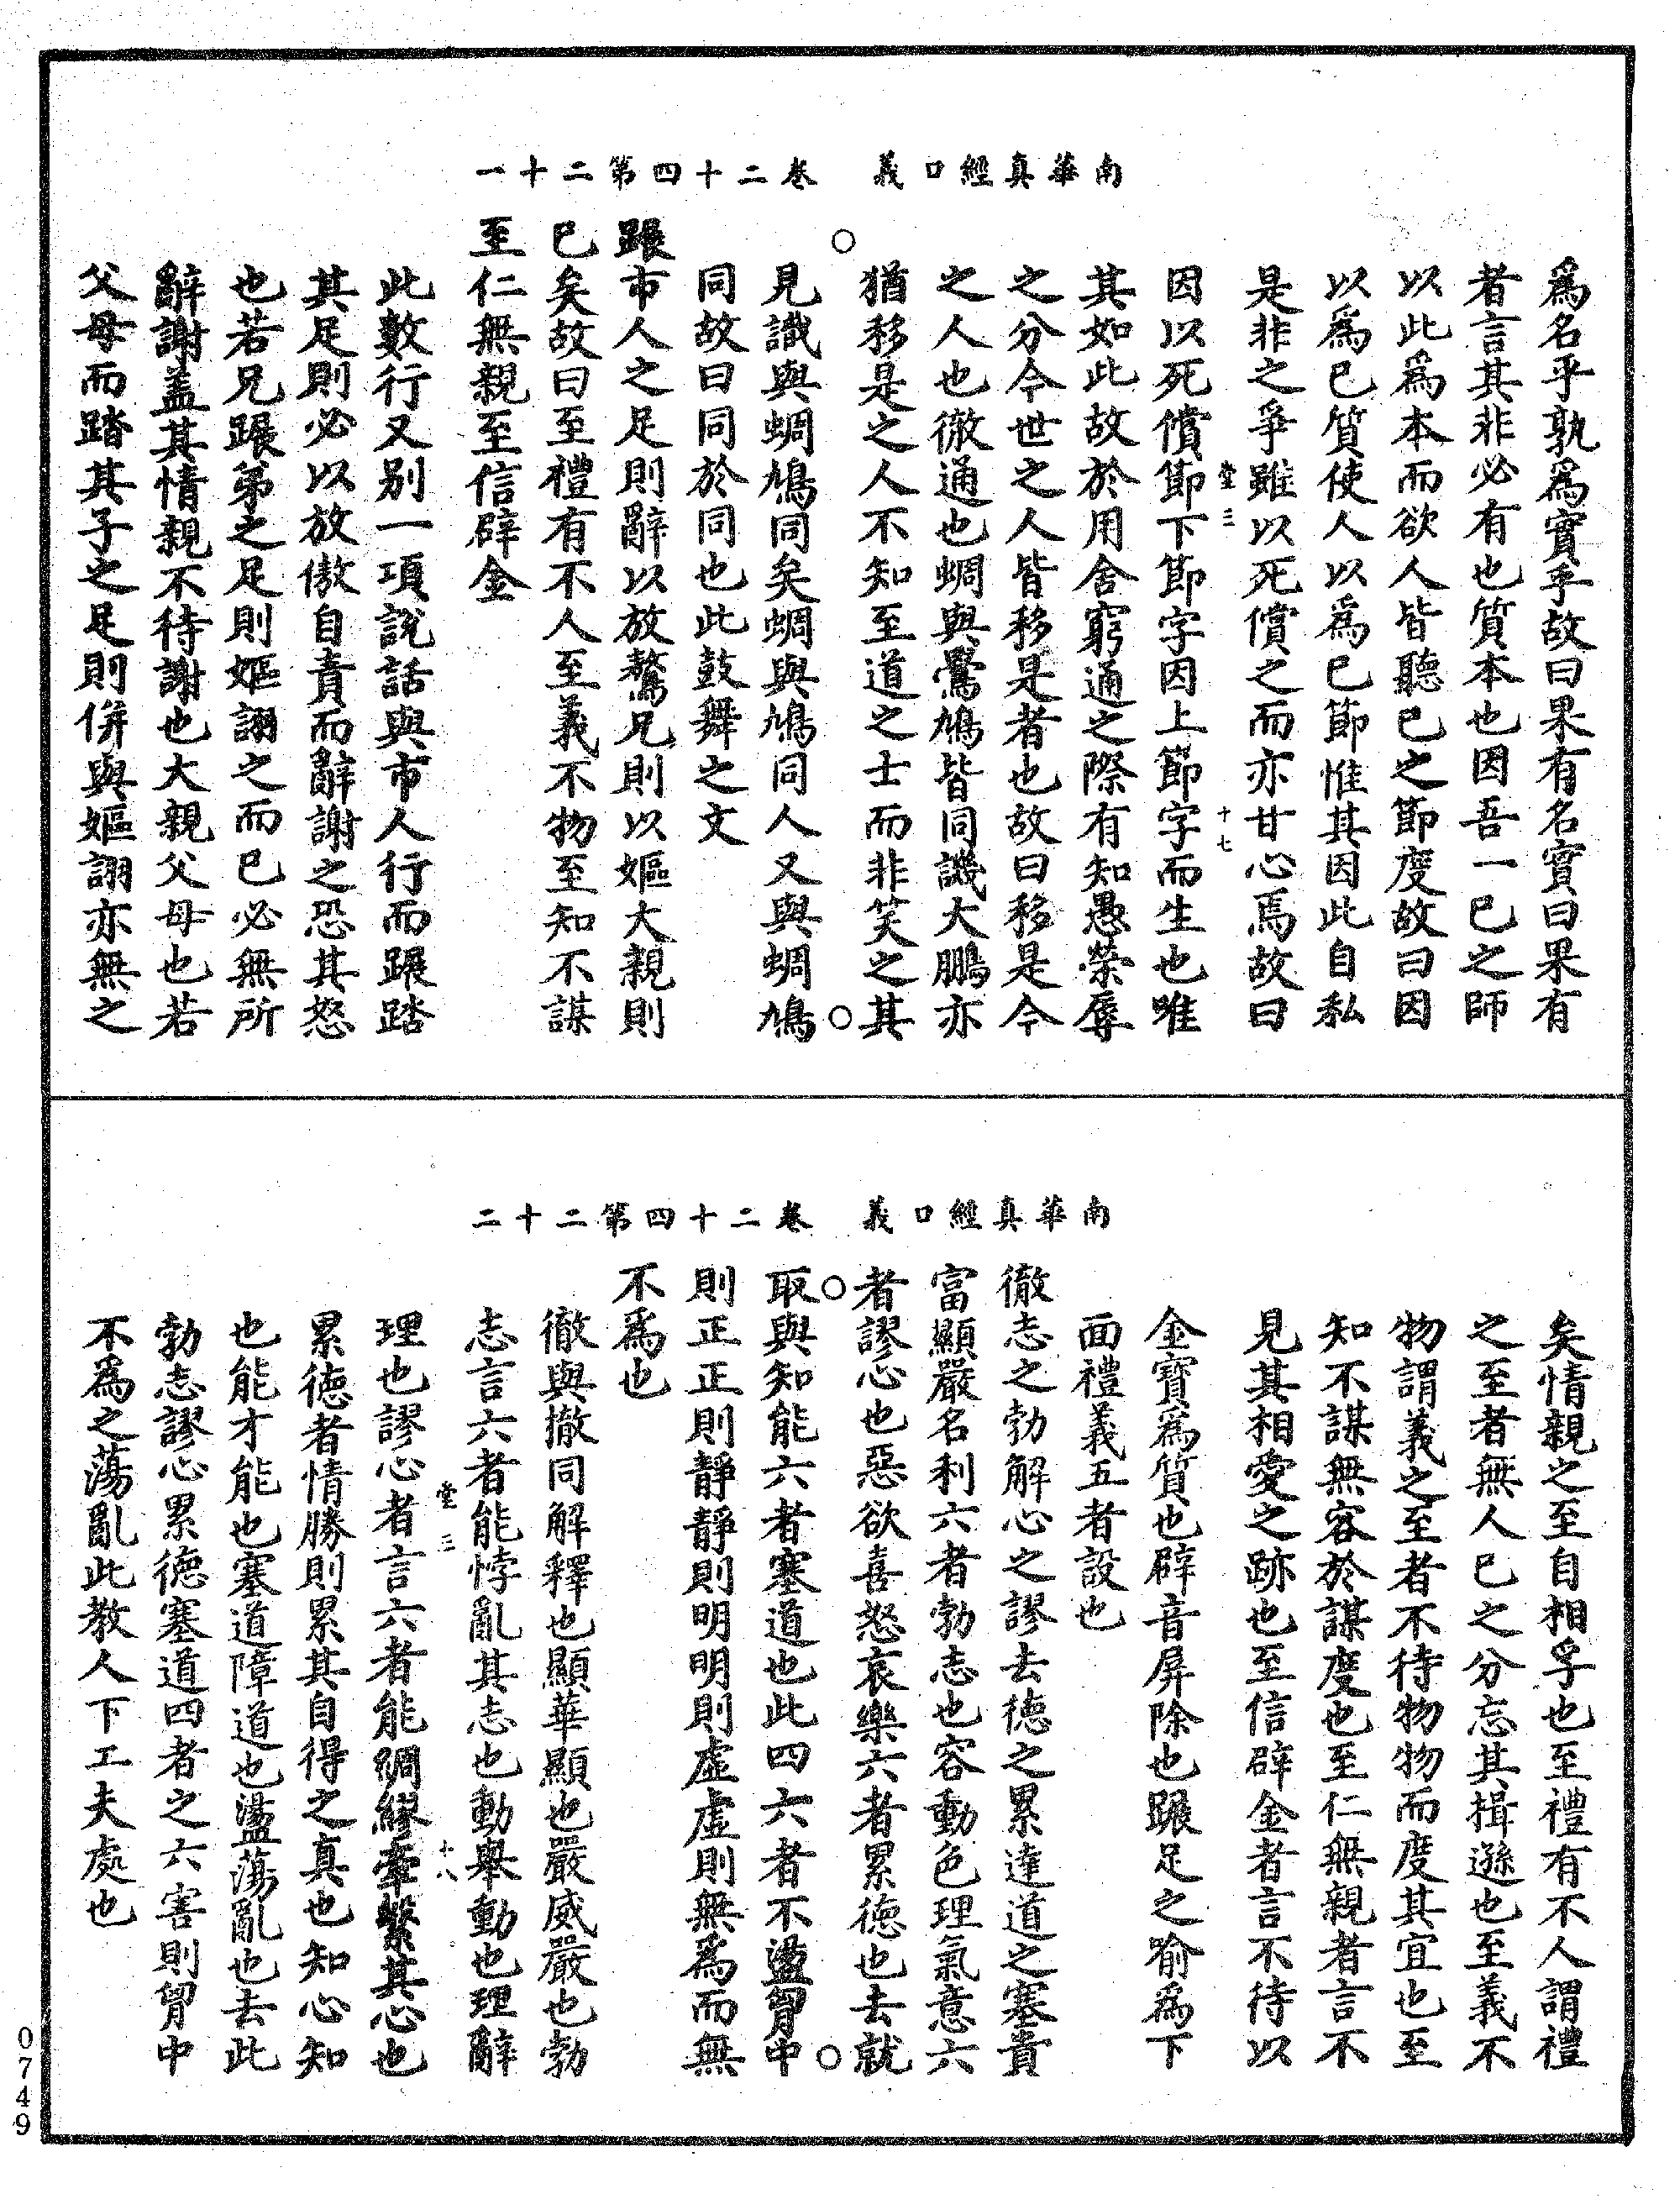 南華真經口義　卷二十四第二十一
爲名乎孰爲實乎故曰果有名實曰果有
者言其非必有也質本也因吾一已之師
以此爲本而欲人皆聽已之節度故曰因
以爲已質使人以爲已節惟其因此自私
是非之爭雖以死償之而亦甘心焉故曰
堂三　十七
因以死償節下節字因上節字而生也唯
其如此故於用舍窮通之際有知愚榮辱
之分今世之人皆移是者也故曰移是今
之人也徹通也蜩與鷽鳩皆同譏大鵬亦
猶移是之人不知至道之士而非笑之其
○　○
見識與蜩鳩同矣蜩與鳩同人又與蜩鳩
同故曰同於同也此鼓舞之文
蹍市人之足則辭以放驁兄則以嫗大親則
已矣故曰至禮有不人至義不物至知不謀
至仁無親至信辟金
此數行又别一項說話與市人行而蹍踏
其足則必以放傲自責而辭謝之恐其怒
也若兄蹍弟之足則嫗詡之而已必無所
辭謝盖其情親不待謝也大親父母也若
父母而踏其子之足則併與嫗詡亦無之
南華真經口義　卷二十四第二十二
矣情親之至自相孚也至禮有不人謂禮
之至者無人已之分忘其揖遜也至義不
物謂義之至者不待物物而度其宜也至
知不謀無容於謀度也至仁無親者言不
見其相愛之跡也至信辟金者言不待以
金寶爲質也辟音屏除也蹍足之喻爲下
面禮義五者設也
徹志之勃解心之謬去德之累達道之塞貴
富顯嚴名利六者勃志也容動色理氣意六
者謬心也惡欲喜怒哀樂六者累德也去就
○　○
取與知能六者塞道也此四六者不盪胷中
則正正則靜靜則明明則虛虛則無爲而無
不爲也
徹與撤同解釋也顯華顯也嚴威嚴也勃
志言六者能悖亂其志也動舉動也理辭
堂三　十八
理也謬心者言六者能綢繆牽繫其心也
累德者情勝則累其自得之真也知心知
也能才能也塞道障道也盪蕩亂也去此
勃志謬心累德塞道四者之六害則胷中
不爲之蕩亂此教人下工夫處也
0749